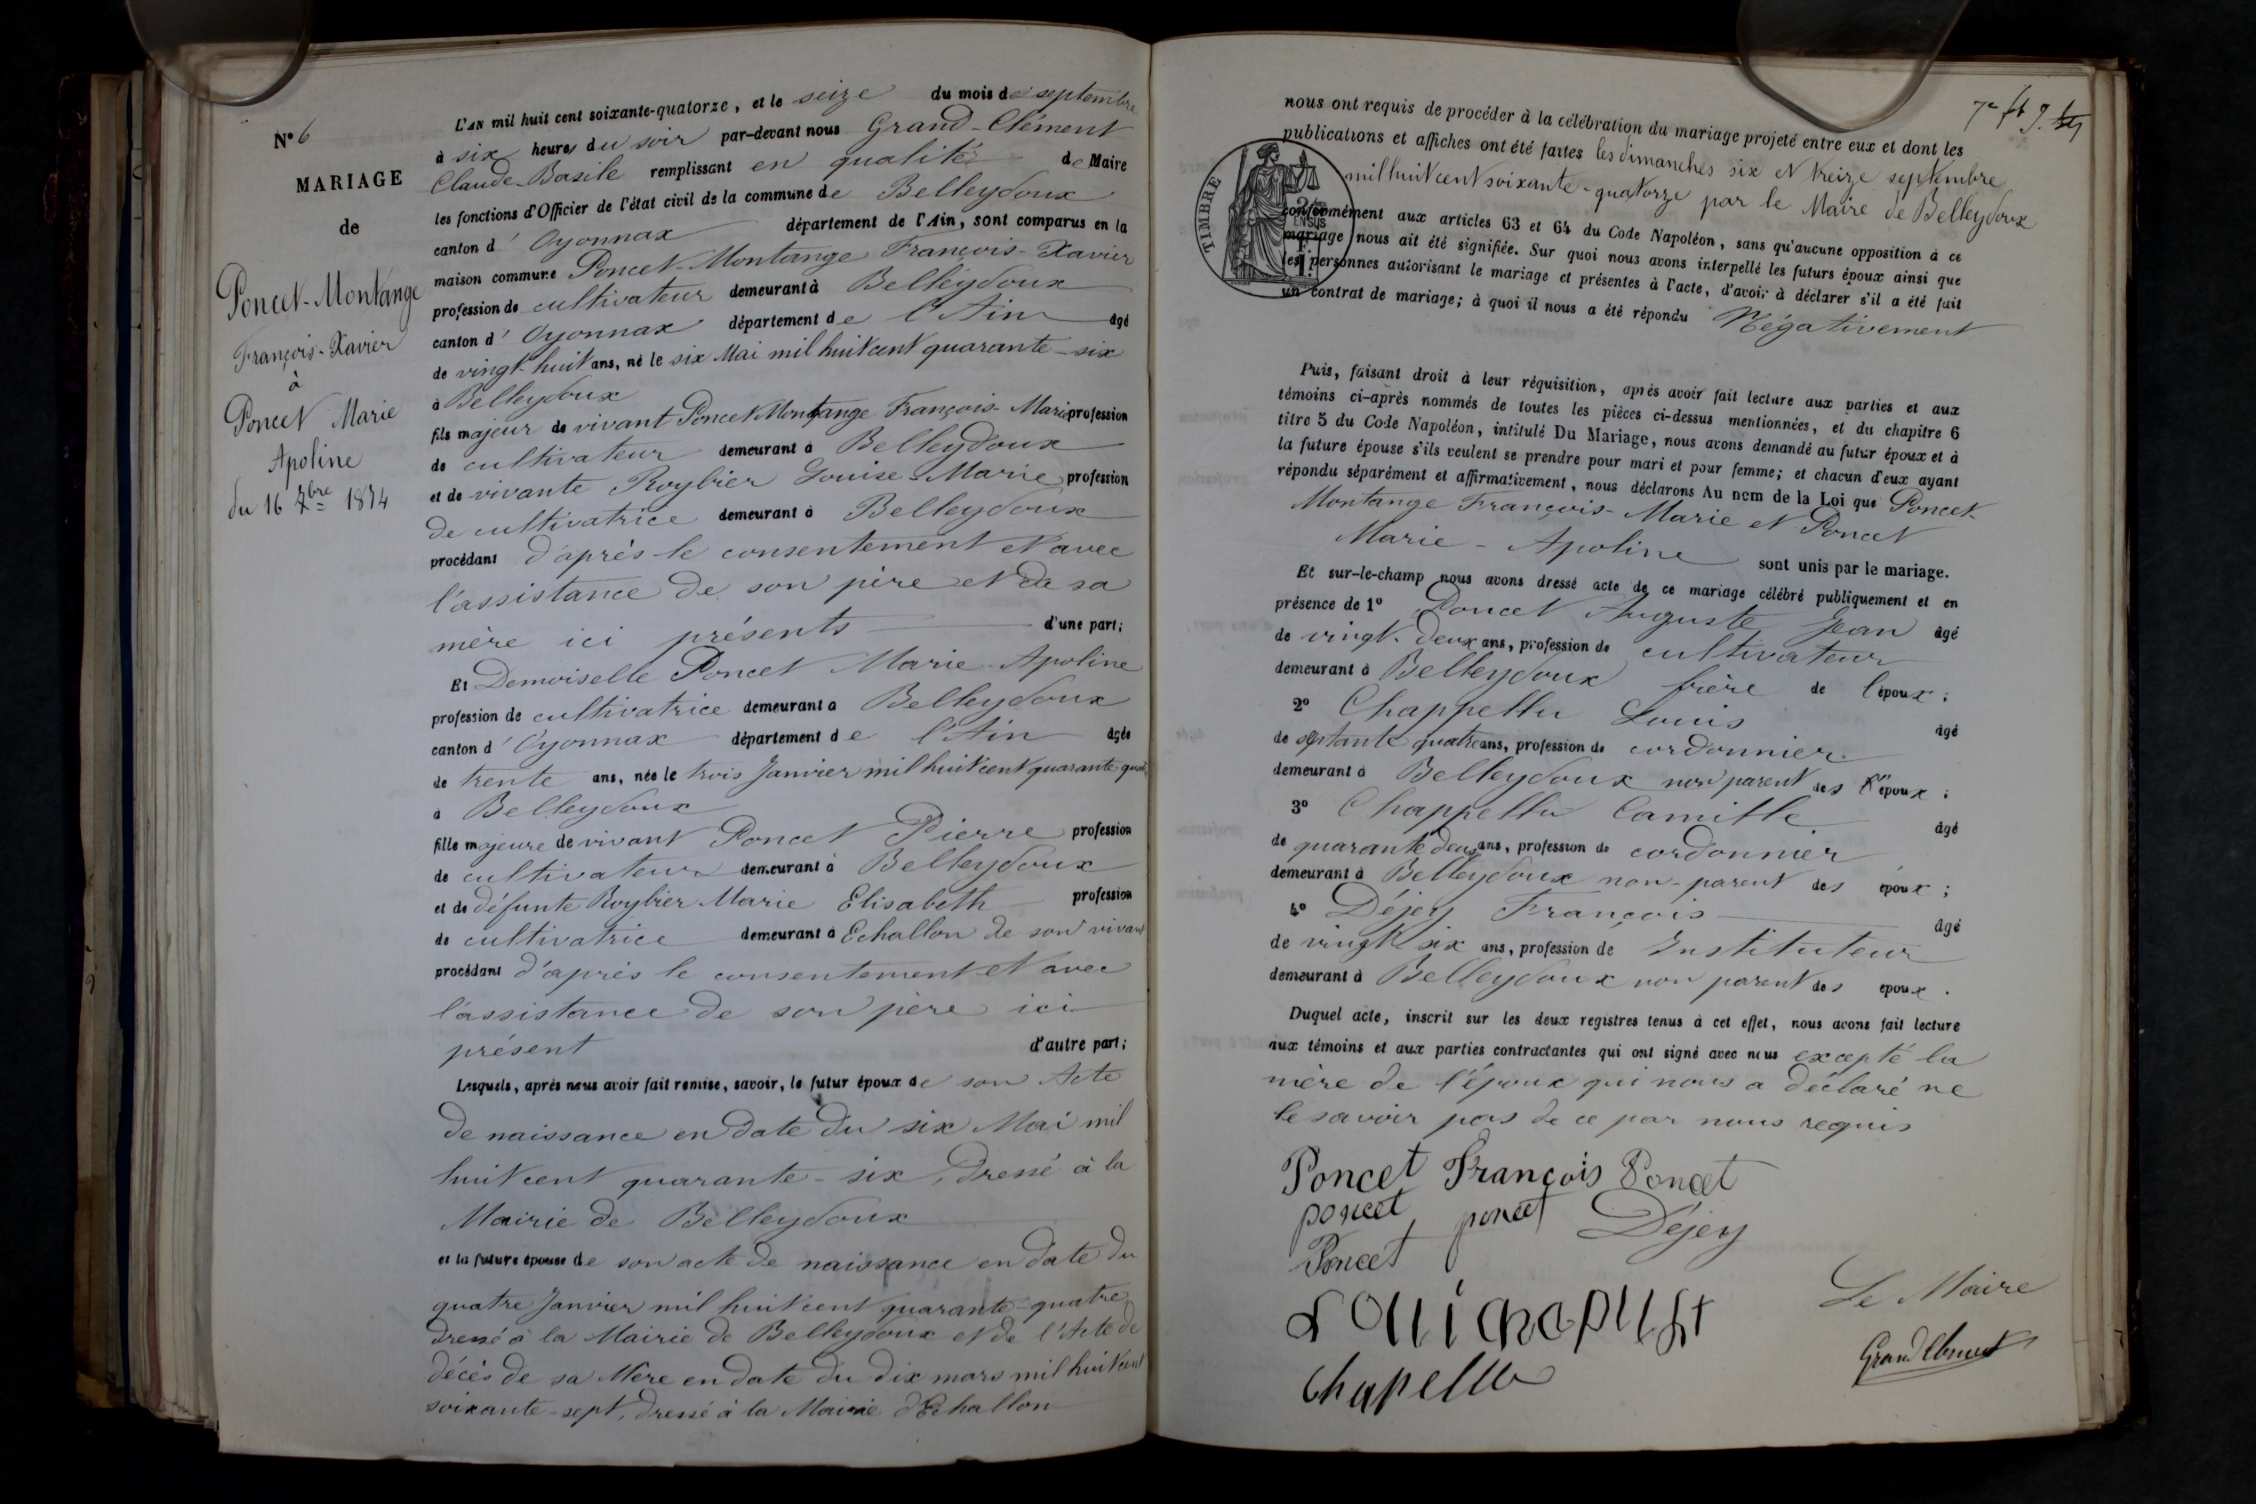 N° 6
MARIAGE
de
Poncet-Montange
François-Xavier
à
Poncet Marie
Apoline
du 16 7bre 1874
L'AN mil huit cent soixante-quatorze, et le seize du mois de septembre
à six heures du soir par-devant nous Grand-Clément
Claude-Basile remplissant en qualité de Maire
les fonctions d'Officier de l'état civil de la commune de Belleydoux
canton d'Oyonnax département de l'Ain, sont comparus en la
maison commune Poncet-Montange François-Xavier
profession de cultivateur demeurant à Belleydoux
canton d'Oyonnax département de l'Ain âgé
de vingt-huit ans, né le six Mai mil huit cent quarante-six
à Belleydoux
fils majeur de vivant Poncet Montange François-Marie profession
de cultivateur demeurant à Belleydoux
et de vivante Roybier Louise Marie profession
de cultivatrice demeurant à Belleydoux
procédant d'après le consentement et avec
l'assistance de son père et de sa
mère ici présents d'une part;
Et Demoiselle Poncet Marie-Apoline
profession de cultivatrice demeurant à Belleydoux
canton d'Oyonnax département de l'Ain âgée
de trente ans, née le trois Janvier mil huit cent quarante quat
à Belleydoux
fille majeure de vivant Poncet Pierre profession
de cultivateur demeurant à Belleydoux
et de défunte Roybier Marie Elisabeth profession
de cultivatrice demeurant à Echallon de son vivant
procédant d'après le consentement et avec
l'assistance de son père ici
présent d'autre part;
Lesquels, après nous avoir fait remise, savoir, le futur époux de son Acte
de naissance en date du six Mai mil
huit cent quarante-six, dressé à la
Mairie de Belleydoux
et la future épouse de son acte de naissance en date du
quatre Janvier mil huit cent quarante-quatre
dressé à la Mairie de Belleydoux et de l'Acte de
décès de sa Mère en date du dix mars mil huit cent
soixante-sept, dressé à la Mairie d'Echallon
nous ont requis de procéder à la célébration du mariage projeté entre eux et dont les
publications et affiches ont été faites les dimanches six et treize septembre
mil huit cent soixante-quatorze par le Maire de Belleydoux
TIMBRE
conformément aux articles 63 et 64 du Code Napoléon, sans qu'aucune opposition à ce
mariage nous ait été signifiée. Sur quoi nous avons interpellé les futurs époux ainsi que
les personnes autorisant le mariage et présentes à l'acte, d'avoir à déclarer s'il a été fait
un contrat de mariage; à quoi il nous a été répondu Négativement
Puis, faisant droit à leur réquisition, après avoir fait lecture aux parties et aux
témoins ci-après nommés de toutes les pièces ci-dessus mentionnées, et du chapitre 6
titre 5 du Code Napoléon, intitulé Du Mariage, nous avons demandé au futur époux et à
la future épouse s'ils veulent se prendre pour mari et pour femme; et chacun d'eux ayant
répondu séparément et affirmativement, nous déclarons Au nom de la Loi que Poncet-
Montange François-Marie et Poncet
Marie-Apoline sont unis par le mariage.
Et sur-le-champ nous avons dressé acte de ce mariage célébré publiquement et en
présence de 1° Poncet Auguste Jean âgé
de vingt-deux ans, profession de cultivateur
demeurant à Belleydoux frère de l'époux;
2° Chappellu Louis âgé
de septante quatre ans, profession de cordonnier
demeurant à Belleydoux non parent des époux;
3° Chappellu Camille âgé
de quarante deux ans, profession de cordonnier
demeurant à Belleydoux non-parent des époux;
4° Déjey François âgé
de vingt six ans, profession de Instituteur
demeurant à Belleydoux non parent des époux.
Duquel acte, inscrit sur les deux registres tenus à cet effet, nous avons fait lecture
aux témoins et aux parties contractantes qui ont signé avec nous excepté la
mère de l'époux qui nous a déclaré ne
le savoir pas de ce par nous requis
Poncet François Poncet
poncet poncet Déjey
Poncet
Le Maire
chapellu
Grand Clément